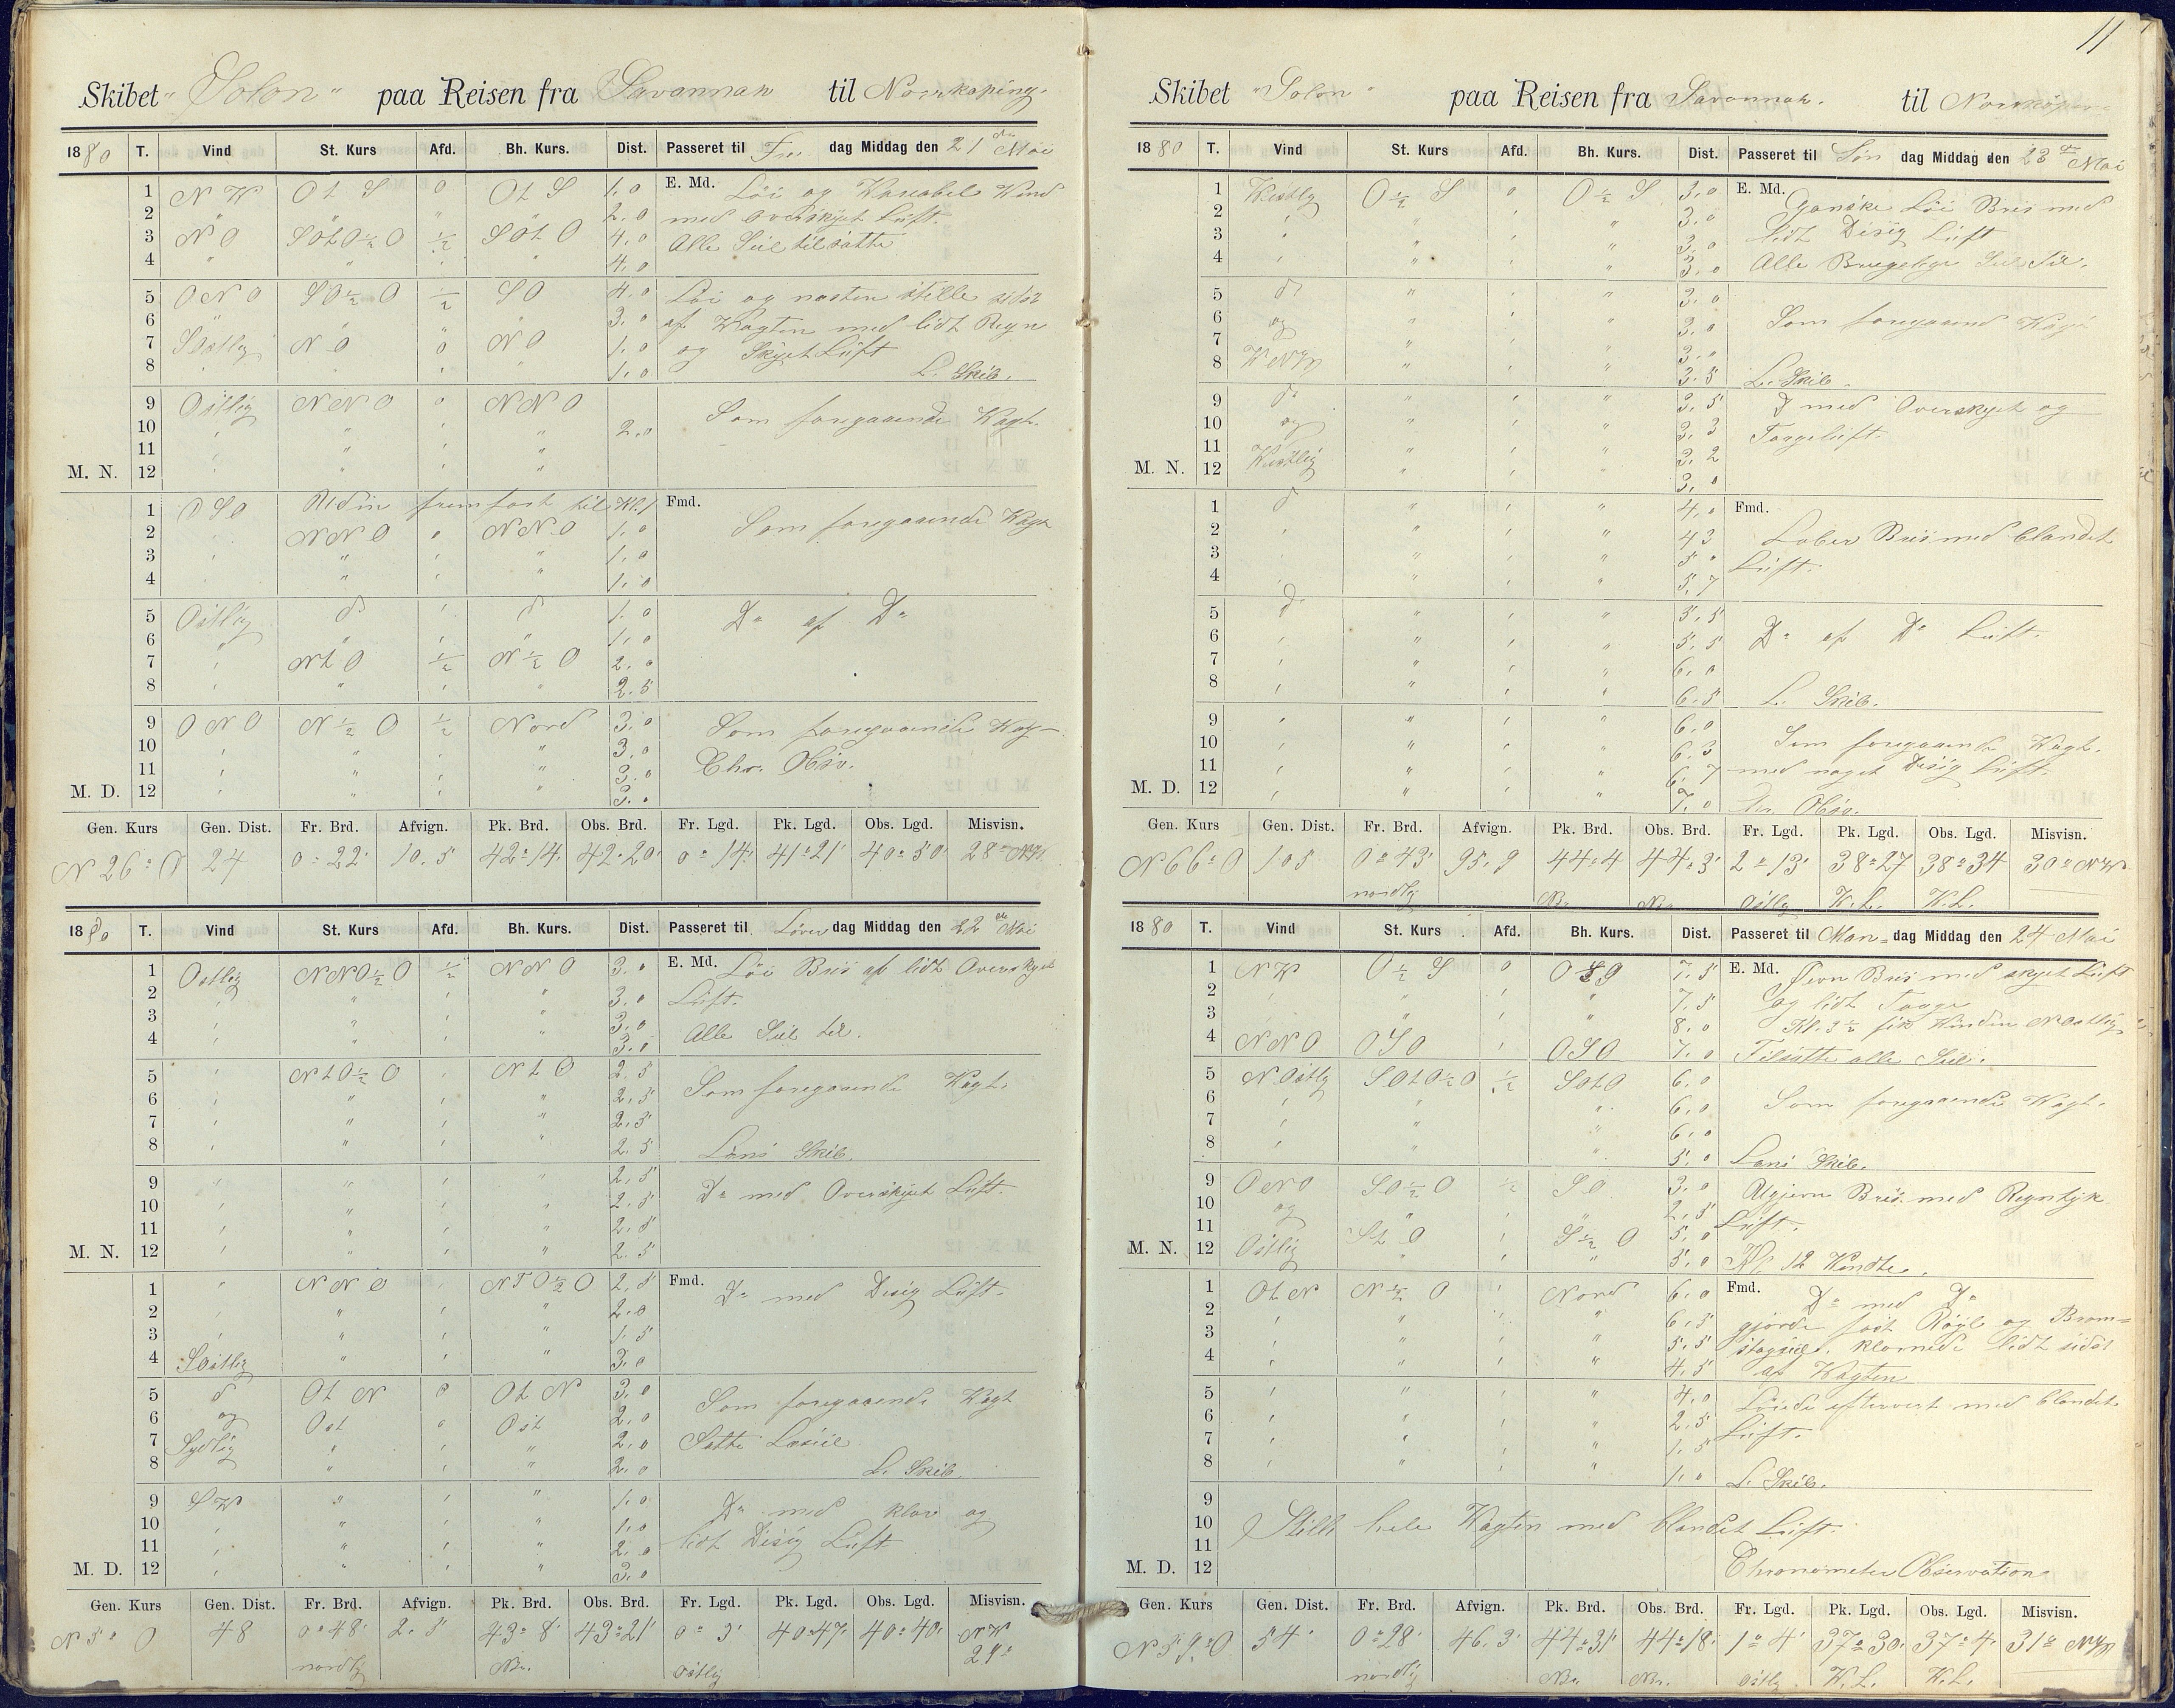 11
Skibet "Solon" paa Reisen fra Savannah til Norrkøping.
1880 T. Vind St. Kurs Afd. Bh. Kurs. Dist. Passeret til Fre dag Middag den 21 de Mai
1 NW Ot S 0 Ot S 1.0 E. Md. Löi og Variabel Wind
2 " " " 2.0 med overskyet Luft.
3 NO SOtO½O ½ SOt O 4.0 Alle Seil tilsatte
4 " " " " 4.0
5 ONO SO½O ½ SO 4.0 Löi og næsten stille sidst
6 " " " " 3.0 af Wagten med lidt Regn
7 SOstlig NO 0 NO 1.0 og Skyet Luft
8 " " " " 1.0 L. Skib.
9 Ostlig NNO 0 NNO Som foregaaende Wagt.
10 " " " " 2.0
11 " " " "
M. N. 12 " " " "
1 OSO fremfast til Kl. 1 Fmd. Som foregaaende Wagt
2 " NNO 0 NNO 1.0
3 " " " " 1.0
4 " " " " 1.0
5 Ostlig do " do 1.0 Do af Do
6 " " " " 1.0
7 " Nt O ½ N½O 2.0
8 " " " " 2.5
9 ONO N½O ½ Nord 3.0 Som foregaaende Wag
10 " " " " 3.0 Chr. Obsv.
11 " " " " 3.0
M. D. 12 " " " " 3.0
Gen. Kurs Gen. Dist. Fr. Brd. Afvign. Pk. Brd. Obs. Brd. Fr. Lgd. Pk. Lgd. Obs. Lgd. Misvisn.
N 26° O 24 0° 22' 10.5 42° 14' 42° 20' 0° 14' 41° 21' 40° 50' 28° NW
1880 T. Vind St. Kurs Afd. Bh. Kurs. Dist. Passeret til Löver dag Middag den 22 de Mai
1 Ostlig NNO½O ½ NNO 3.0 E. Md. Löi Bris af lidt Overskyet
2 " " " " 3.0 Luft.
3 " " " " 3.0 Alle Seil til.
4 " " " " 3.0
5 " NtO½O " Nt O 2.5 Som foregaaende Wagt.
6 " " " " 2.5
7 " " " " 2.5
8 " " " " 2.5 Læns Skib.
9 " " " " 2.5 Do med Overskyet Luft.
10 " " " " 2.5
11 " " " " 2.5
M. N. 12 " " " " 2.5
1 " NNO " NTO½O 2.5 Fmd. Do med Disig Luft.
2 " " " " 2.0
3 " " " " 1.5
4 SOstlig " " " 3.0
5 do Ot N 0 Ot N 3.0 Som foregaaende Wagt
6 og Ost 0 Ost 2.0
7 Sydlig " " " 2.0 Satte Læseil
8 " " " 2.0 L. Skib.
9 SW " " " 1.0 Do med klar og
10 " " " " 1.0 lidt Disig Luft
11 " " " " 2.0
M. D. 12 " " " " 3.0
Gen. Kurs Gen. Dist. Fr. Brd. Afvign. Pk. Brd. Obs. Brd. Fr. Lgd. Pk. Lgd. Obs. Lgd. Misvisn.
N 5° O 48 0° 48' 2.5 43° 8' 43° 21' 0° 3' 40° 47' 40° 40' NW
nordlig Nr. Ostlig 29°
Skibet "Solon" paa Reisen fra Savannah. til Norrköping
1880 T. Vind St. Kurs Afd. Bh. Kurs. Dist. Passeret til Søn dag Middag den 23 de Mai
1 Westlig O½S 0 O½S 3.0 E. Md. Ganske Löi Bris med
2 " " " " 3.0 lidt Disig Luft
3 " " " " 3.0 Alle Brugelige Seil Til.
4 " " " " 3.0
5 do " " " 3.0 Som foregaaend Wagt
6 og " " " 3.0
7 WNW " " " 3.0
8 " " " 3.5 L. Skib.
9 do " " " 3.5 D med Overskyet og
10 og " " " 3.3 Taageluft.
11 Westlig " " " 3.2
M. N. 12 " " " 3.0
1 do " " " 4.0 Fmd.
2 " " " " 4.3 Laber Bris med blandet
3 " " " " 5.0 Luft.
4 " " " " 5.7
5 do " " " 5.5 Do af Do Luft.
6 " " " " 5.5
7 " " " " 6.0
8 " " " " 6.5 L. Skib.
9 " " " " 6.0 Som foregaaende Wagt.
10 " " " " 6.3 med noget Disig Luft.
11 " " " " 6.7
M. D. 12 " " " " 7.0 Chr. Obsv.
Gen. Kurs Gen. Dist. Fr. Brd. Afvign. Pk. Brd. Obs. Brd. Fr. Lgd. Pk. Lgd. Obs. Lgd. Misvisn.
N 66° O 105 0° 43' 95.9 44° 4 44° 3' 2° 13' 38° 27 38° 34 30° NW
nordlig Nr. Nr. Ostlig W.L. W.L.
1880 T. Vind St. Kurs Afd. Bh. Kurs. Dist. Passeret til Man- dag Middag den 24 Mai
1 NW O½S 0 7.5 E. Md. Jevn Bris med skyet Luft
2 " " " " 7.5 og lidt Taage
3 " " " " 8.0 Kl. 3½ fik Vinden NOstlig
4 NNO OSO " OSO 7.0 Tilsatte alle Seil.
5 NOstlig SOtO½O ½ SOtO 6.0
6 " " " " 6.0 Som foregaaende Wagt.
7 " " " " 6.0
8 " " " 5.0 Læns Skib.
9 ONO SO½O ½ SO 3.0 Ujevn Bris med Regntyk
10 og " " " 2.5 Luft.
11 Ostlig St O " S½O 5.0
M. N. 12 " " " 5.0 Kl. 12 Vendte.
1 Ot N N½O " Nord 6.0 Fmd. Do med Do
2 " " " " 6.5 gjorde fast Røgl og Bram-
3 " " " " 5.5 stagseil. klarnede lidt sidst
4 " " " " 4.5 af Wagten
5 " " " " 4.0 Löiede eftervert med blandet
6 " " " " 2.5 Luft.
7 " " " " 1.5
8 " " " " 1.0 L. Skib.
9
10 Stille hele Wagten med blandet Luft.
11
M. D. 12 Chronometer Observation
Gen. Kurs Gen. Dist. Fr. Brd. Afvign. Pk. Brd. Obs. Brd. Fr. Lgd. Pk. Lgd. Obs. Lgd. Misvisn.
N 59° O 54' 0° 28' 46.3' 44° 31' 44° 18' 1° 4' 37° 30' 37° 4' 31° NW
nordlig Nr. Nr. Ostlig W.L. W.L.